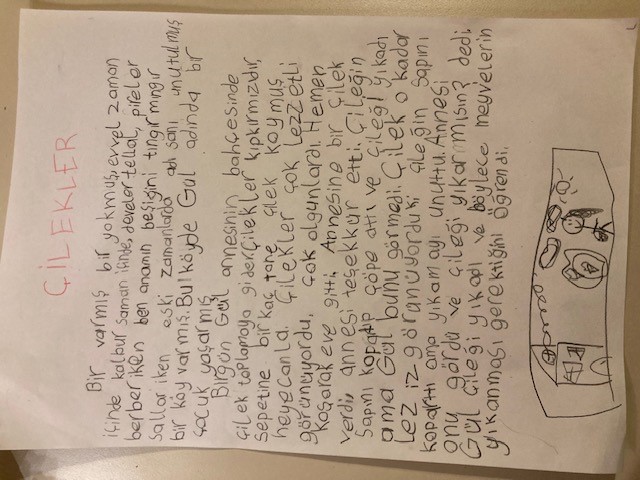 ÇİLEKLER
Bir varmış bir yokmuş, evvel zaman
içinde kalbur saman içinde, develer tellal, pireler
berber iken ben anamın beşiğini tıngır mıngır
sallar iken eski zamanlarda adı sanı unutulmuş
bir köy varmış. Bu köyde Gül adında bir
çocuk yaşarmış.
Birgün Gül annesinin bahçesinde
çilek toplamaya gider. Çilekler kıpkırmızıdır
sepetine bir kaç tane çilek koymuş
heyecanla. Çilekler çok lezzetli
görünüyordu, çok olgunlardı. Hemen
koşarak eve gitti. Annesine bir çilek
verdi annesi teşekkür etti. Çileğin
sapını kopatıp çöpe attı ve çileği yıkadı
ama Gül bunu görmedi. Çilek o kadar
lez iz görünüyorduki çileğin sapını
koparttı ama yıkamayı unuttu. Annesi
onu gördü ve çileği yıkarmısın? dedi.
Gül çileği yıkadı ve böylece meyvelerin
yıkanması gerektiğini öğrendi.